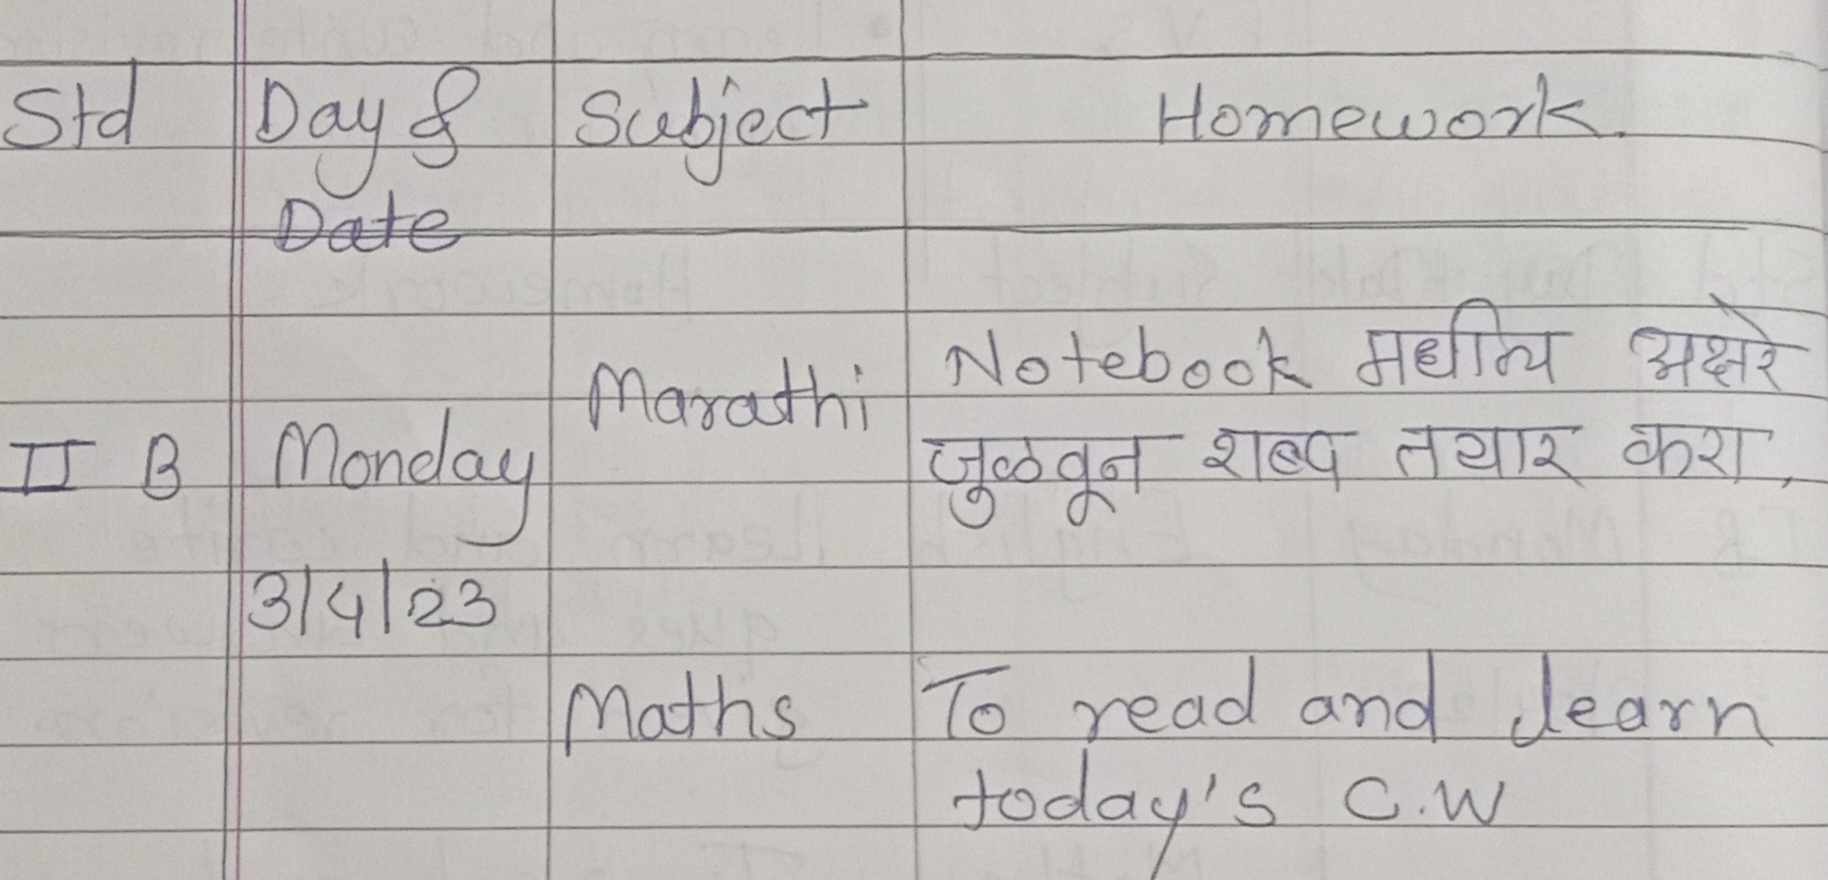 Std Day & Subject Homework.
Date
Notebook मधील अक्षरे
Marathi
II B Monday जुळवून शब्द तयार करा.
3/4/23
Maths To read and learn
today's C.W